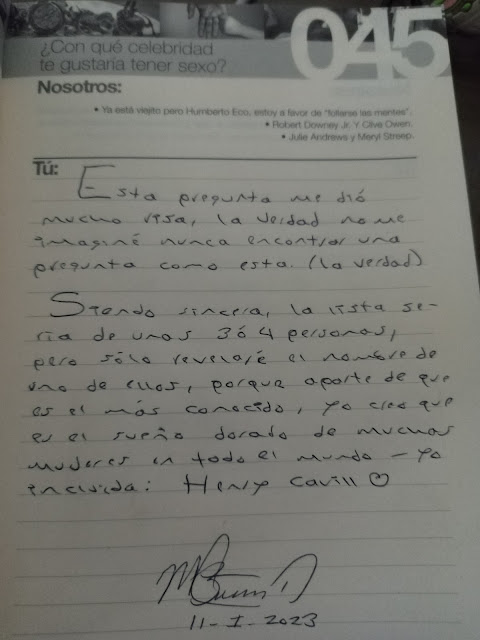 045
¿Con qué celebridad
te gustaría tener sexo?
Nosotros:
• Ya está viejito pero Humberto Eco, estoy a favor de "follarse las mentes".
• Robert Downey Jr. Y Clive Owen.
• Julie Andrews y Meryl Streep.
Tú:
Esta pregunta me dió
mucho risa, la verdad no me
imaginé nunca encontrar una
pregunta como esta. (la verdad)
Siendo sincera, la lista se-
ría de unas 3 ó 4 personas,
pero sólo revelaré el nombre de
uno de ellos, porque aparte de que
es el más conocido, yo creo que
es el sueño dorado de muchas
mujeres en todo el mundo - yo
incluida: Henry Cavill ♡
11-I-2023